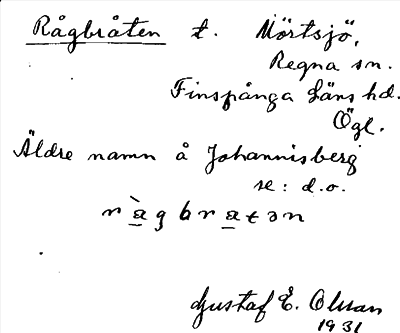 Rågbråten t. Mörtsjö,
Regna sn.
Finspånga Läns hd.
Ögl.
Äldre namn å Johannisberg
se: d.o.
ràgbratən
Gustaf E. Olsson
1931